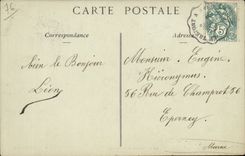 CARTE POSTALE
Correspondance
Bien le Bonjour
Léon
Monsieur Eugène
Hiéronymus
36 Rue de Champrot 36
Epernay
Marne
5